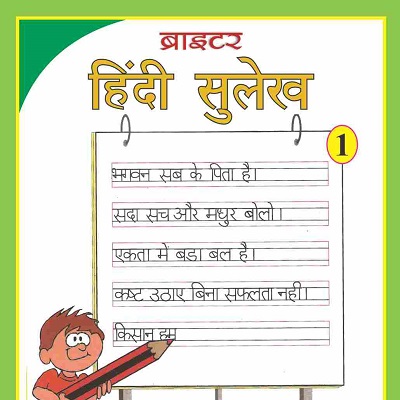 ब्राइटर
हिंदी सुलेख
1
भगवन सब के पिता है।
सदा सच और मधुर बोलो।
एकता में बडा बल है।
कष्ट उठाए बिना सफलता नही।
किसान हम